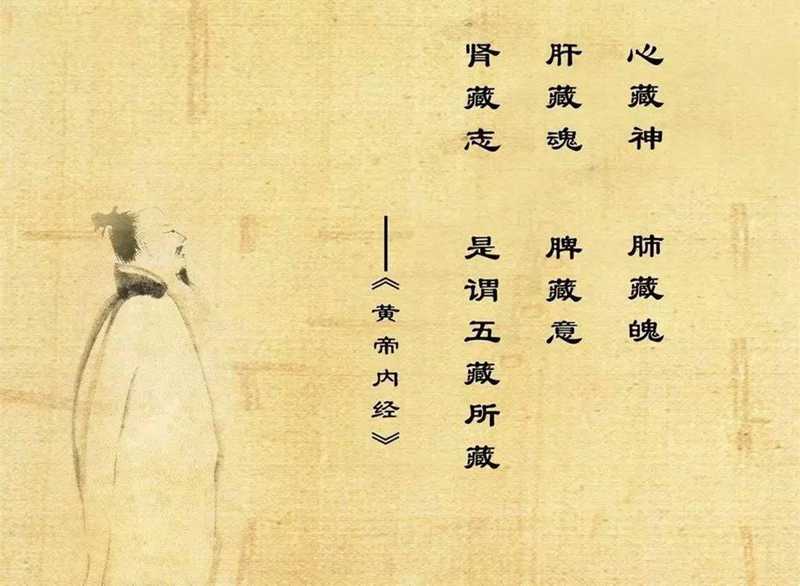 心藏神 肺藏魄
肝藏魂 脾藏意
肾藏志 是谓五藏所藏
——《黄帝内经》